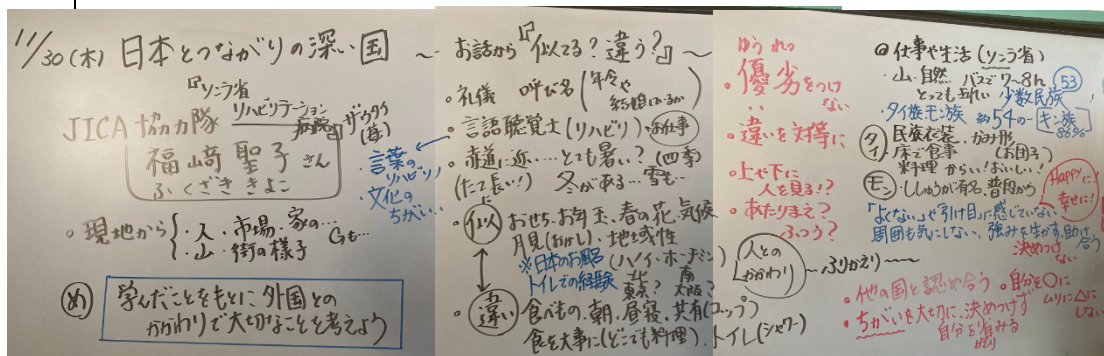 11/30(木) 日本とつながりの深い国 ～
『ソンラ省
JICA協力隊 リハビリテーション病院』
福﨑 聖子 さん
ふくざき きよこ
・現地から
・人、市場、家の…
・山、街の様子
め 学んだことをもとに外国との
かかわりで大切なことを考えよう
お話から『似てる?違う?』～
・礼儀 呼び名 (年令や結婚しているか)
・言語聴覚士(リハビリ)、お仕事
言葉のリハビリ
文化のちがい…
・赤道に近い……とても暑い? (四季)
(たて長い!) 冬がある…雪も…
・似 おせち、お年玉、春の花、気候
月見(おかし)、地域性
※日本のお風呂 (ハノイ・ホーチミン)
トイレでの経験 北 東京? 南 大阪?
・違い 食べもの、朝、昼寝、共有(コップ)
食を大事に(どこでも料理)、トイレ(シャワー)
ゆうれつ
・優劣をつけない
・違いを対等に
・上や下に
人を見る!?
・あたりまえ?
ふつう?
人とのかかわり
仕事や生活(ソンラ省)
・山、自然 バスで7～8h
とっても 少数民族 53
・タイ族モン族 約54の キン族 86%
タイ 民族衣装、かみ形
床で食事 (お団子)
料理 からい!おいしい!
モン ・ししゅうが有名、普段から
Happyに! 幸せに!
「よくない」や「引け目」に感じていない
周囲も気にしない、強みを生かす、助け合う
決めつけない
～ふりかえり～
・他の国と認め合う
・自分を○に
ムリに△にしない
・ちがいを大切に、決めつけず
自分を省みる